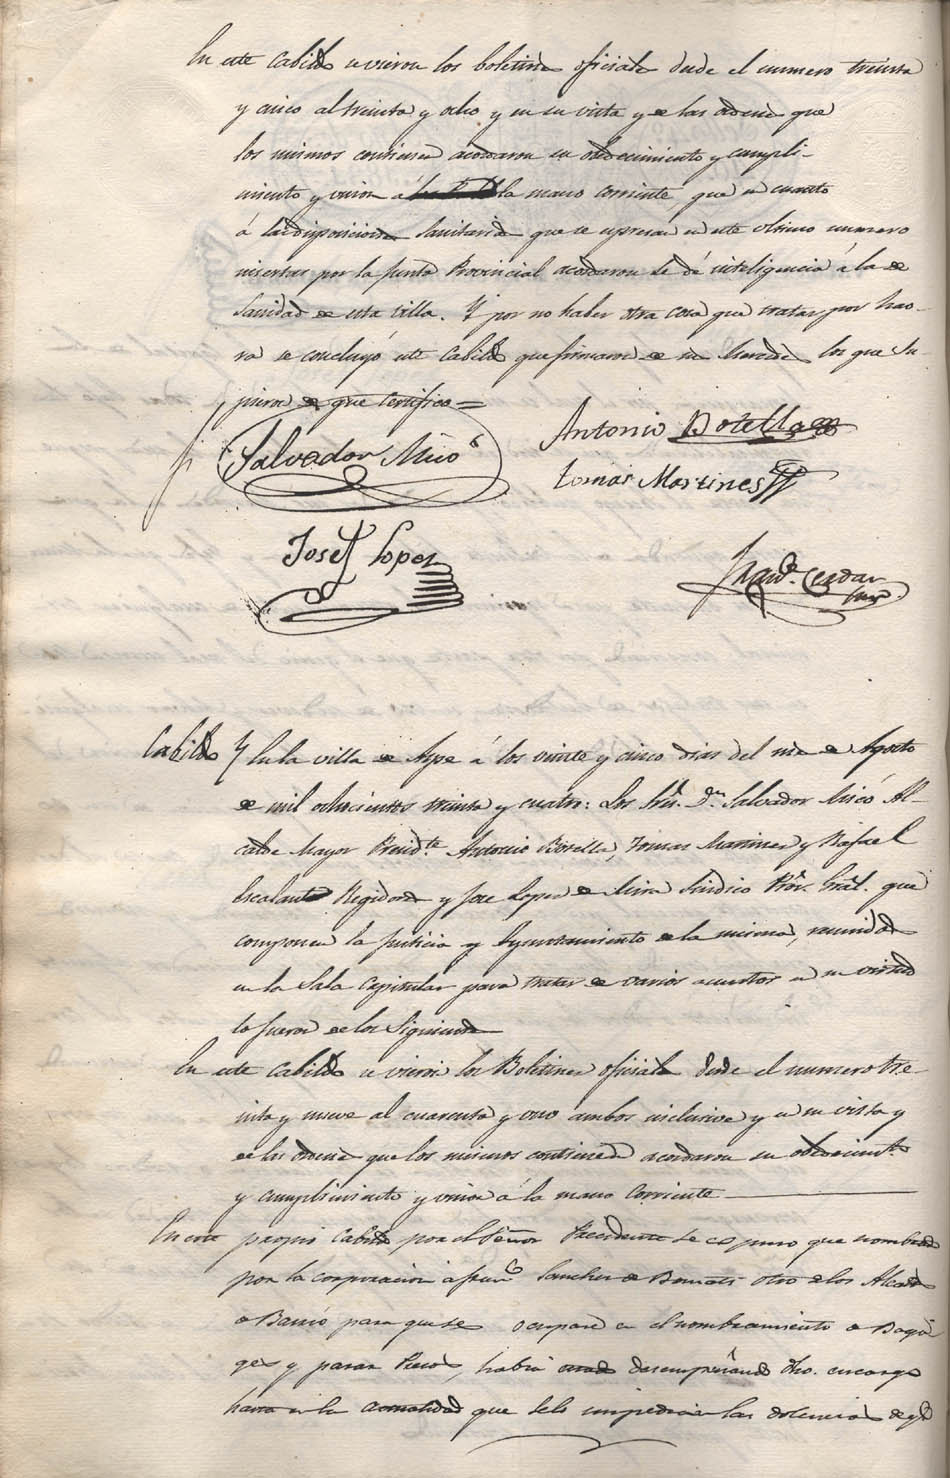 En este Cabildo se vieron los boletines oficiales desde el numero treinta
y cinco al treinta y ocho y en su vista y de las ordenes que
los mismos contienen acordaron su obedecimiento y cumpli-
miento y union á la mano corriente, que en cuanto
á las disposiciones Sanitarias que se espresan en este ultimo numero
insertas por la Junta Provincial acordaron se dé inteligencia á la de
Sanidad de esta villa. Y por no haber otra cosa que tratar por hao-
ra se concluyó este Cabildo que firmaron de sus Mercedes los que su-
pieron de que Certifico =
Salvador Micó
Antonio Botella
Tomas Martines
Josef Lopez
Cabildo } En la villa de Aspe á los veinte y cinco dias del mes de Agosto
de mil ochocientos treinta y cuatro: Los Sres. Dn. Salvador Micó Al-
calde Mayor Presidte. Antonio Botella, Tomas Martines y Rafael
Escalante Regidores y Jose Lopez de Mira Sindico Pror. Gral. que
componen la Justicia y Ayuntamiento de la misma, reunidos
en la Sala Capitular para tratar de varios asuntos en su virtud
lo fueron de los Siguientes
En este Cabildo se vieron los Boletines oficiales desde el numero tre-
inta y nueve al cuarenta y uno ambos inclusive y en su vista y
de las ordenes que los mismos contienen acordaron su obedecimto.
y cumplimiento y union á la mano Corriente
En este propio Cabildo por el Señor Presidente se espuso que nombrado
por la corporacion á Sanches de otro de los Alcaldes
de Barrio para que se ocupare en el nombramiento de Baga-
ges y pasar habia desempeñando dho. encargo
hasta en la actualidad que se lo impedian las dolencias de qe.